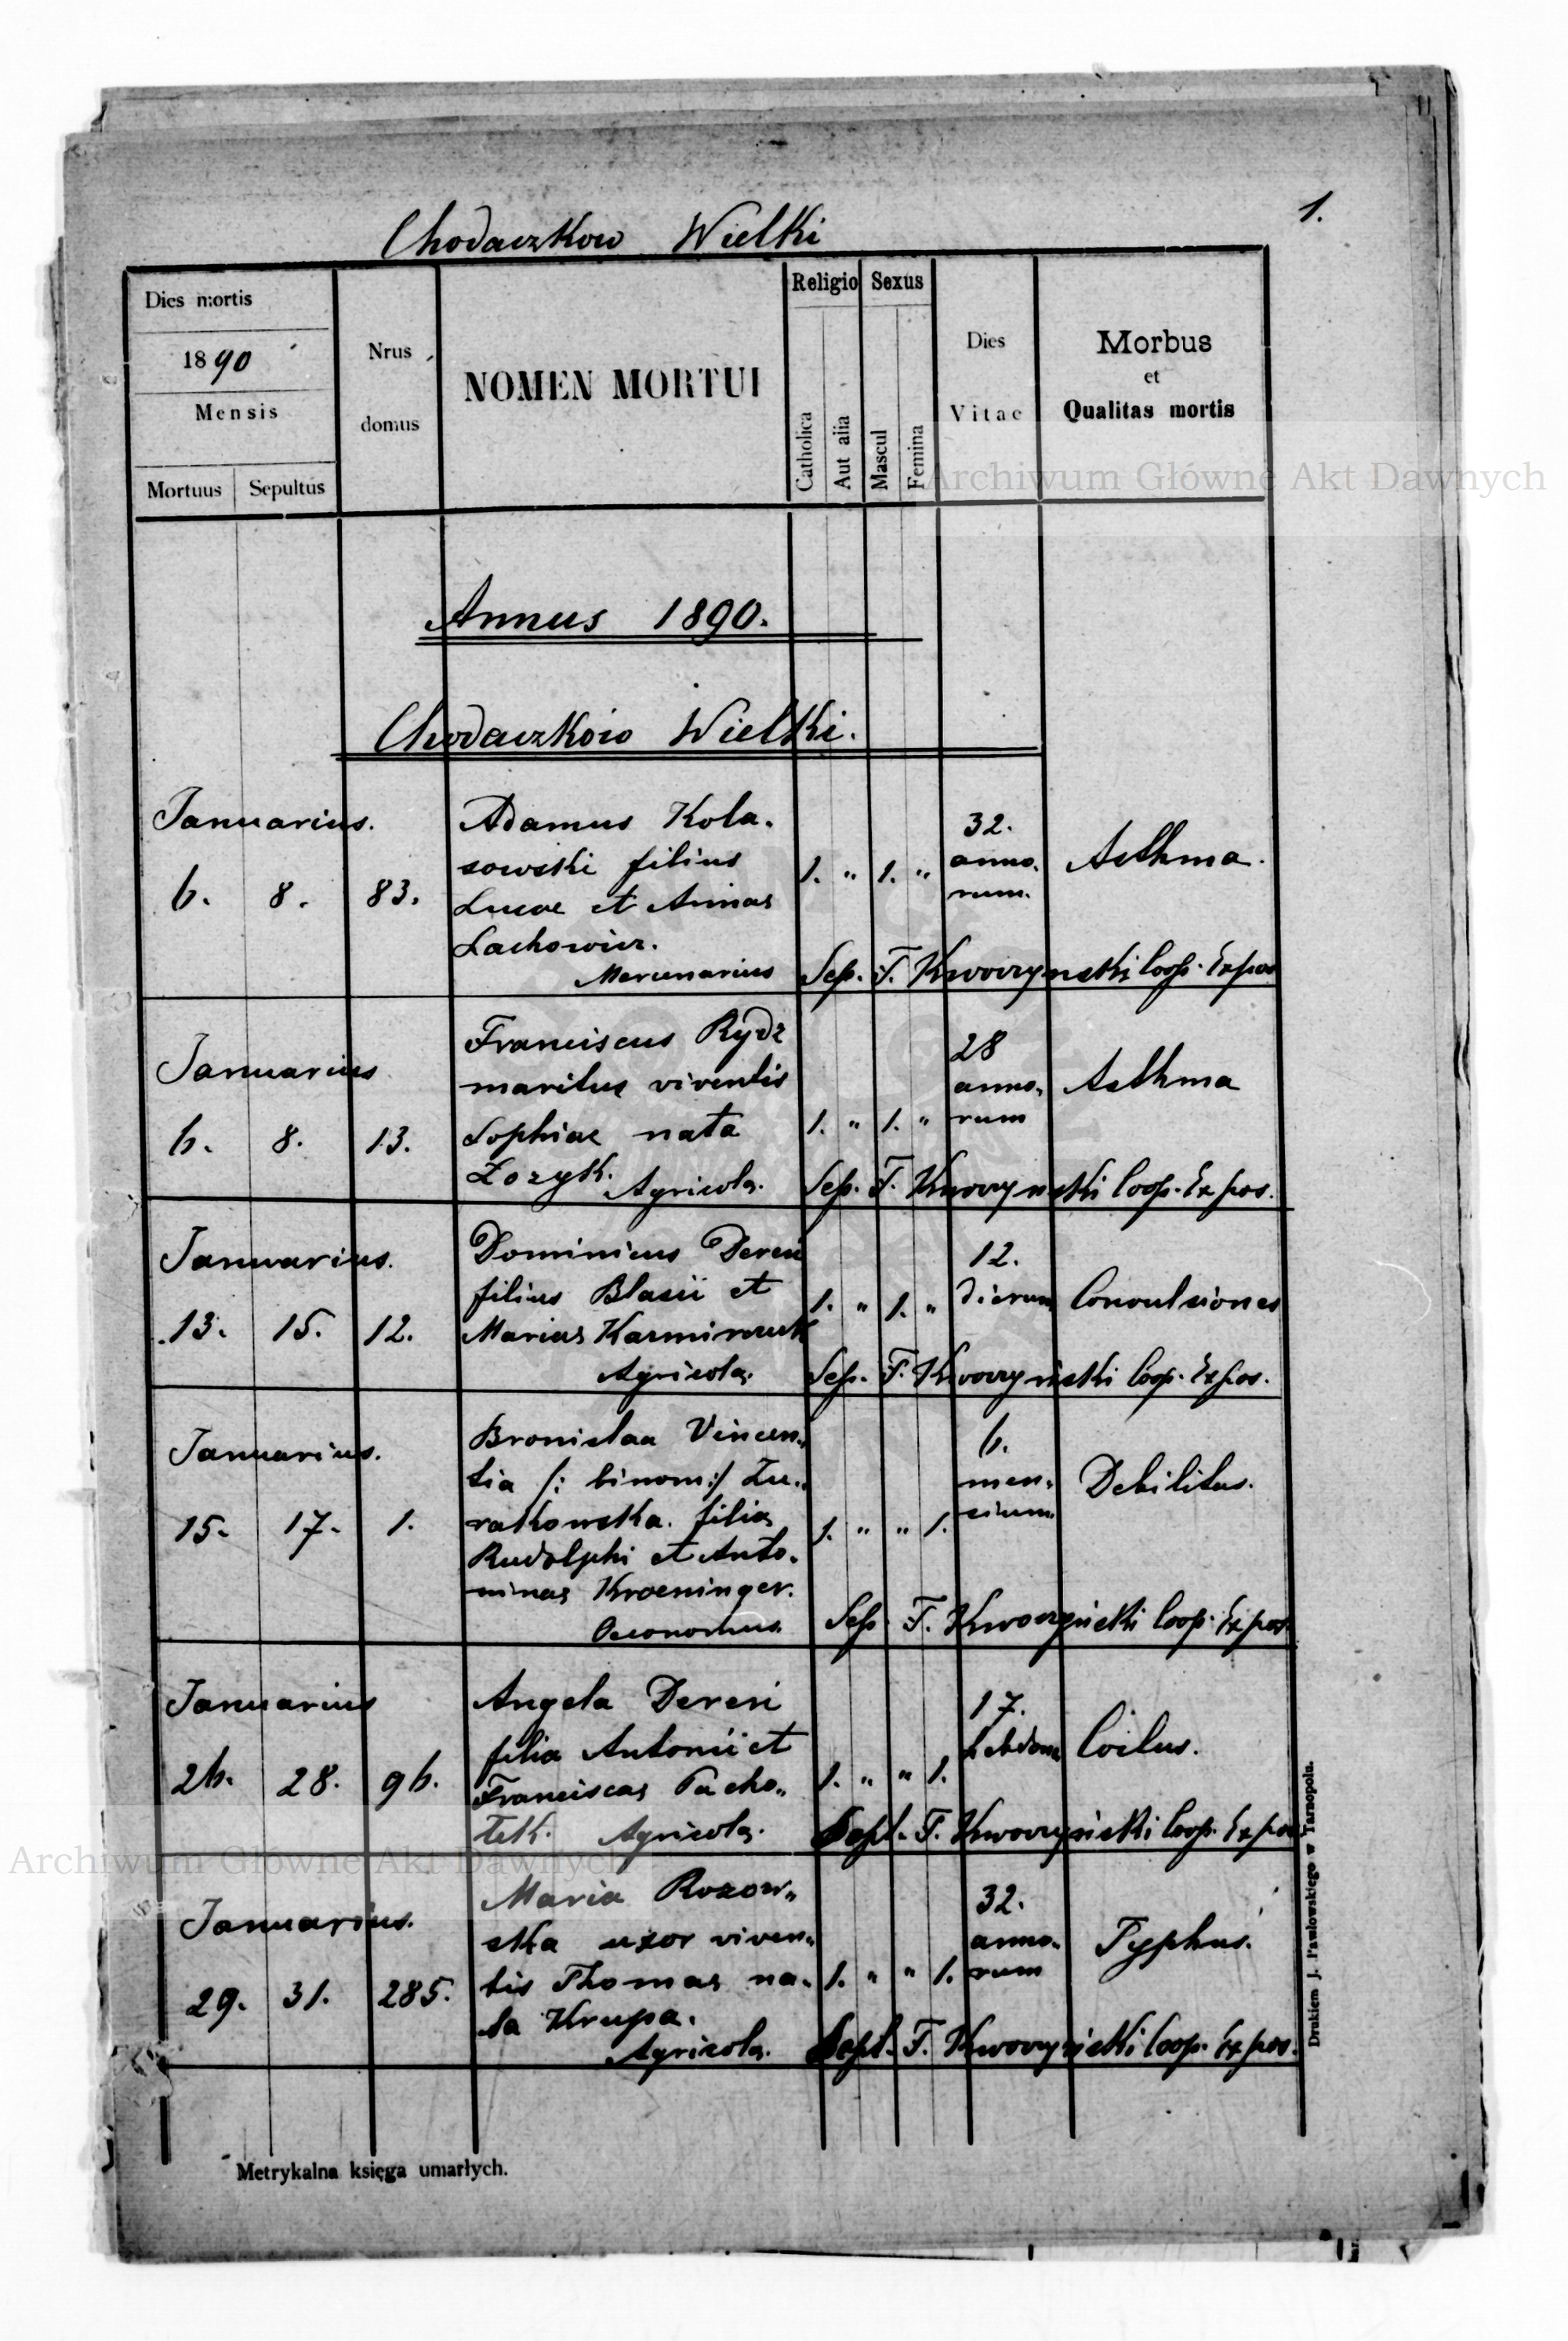 Chodaczkow Wielki
1.
Dies mortis
1890
Mensis
Mortuus Sepultus
Nrus
domus
NOMEN MORTUI
Religio
Catholica
Aut alia
Sexus
Mascul
Femina
Dies
Vitae
Morbus
et
Qualitas mortis
Archiwum Główne Akt Dawnych
Annus 1890.
Chodaczkow Wielki.
Januarius.
6. 8. 83.
Adamus Kola-
sowski filius
Lucae et Annae
Lachowicz.
Mercenarius
1. " 1. "
32.
anno-
rum.
Asthma.
Sep. F. Kwoczynski Coop. Expos
Januarius
6. 8. 13.
Franciscus Rydz
maritus viventis
Sophiae nata
Zozyk. Agricola.
1. " 1. "
28
anno-
rum
Asthma
Sep. F. Kwoczynski Coop. Expos.
Januarius.
13. 15. 12.
Dominicus Deren
filius Blasii et
Mariae
Agricola.
1. " 1. "
12.
dierum
Convulsiones
Sep. F. Kwoczynski Coop. Expos.
Januarius.
15. 17. 1.
Bronislaa Vincen-
tia /: binom:/ Zu-
rakowska. filia
Rudolphi et Anto-
ninae Kroeninger.
Oeconomus
1. " " 1.
6.
men-
sium
Debilitas.
Sep. F. Kwoczynski Coop. Expos.
Januarius
26. 28. 96.
Angela Deren
filia Antonii et
Franciscae Pacho-
tek. Agricola.
1. " " 1.
17.
hebdom
Coitus.
Sept. F. Kwoczynski Coop. Expos.
Archiwum Główne Akt Dawnych
Januarius.
29. 31. 285.
Maria Rozow-
ska uxor viven-
tis Thomae na-
ta Krupa.
Agricola.
1. " " 1.
32.
anno-
rum
Typhus.
Sept. F. Kwoczynski Coop. Expos.
Drukiem J. Pawlowskiego w Tarnopolu.
Metrykalna księga umarłych.